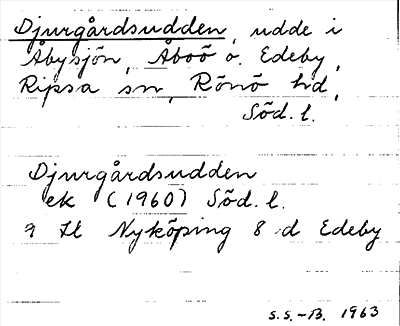 Djurgårdsudden, udde i
Åbysjön, Åboö o. Edeby,
Ripsa sn, Rönö hd,
Söd. l.
Djurgårdsudden
ek (1960) Söd. l.
9 H Nyköping 8 d Edeby
S.S.-B. 1963